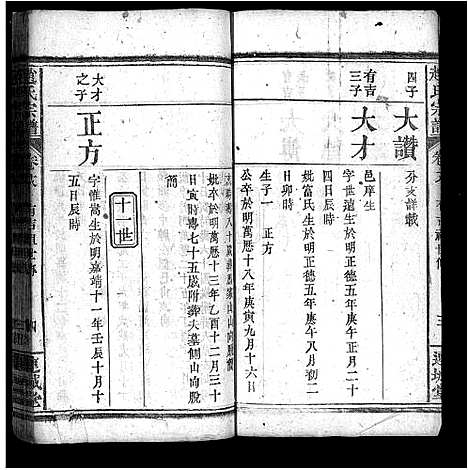 趙氏宗譜
三
連城堂
四子
大讚
分支詳載
有吉三子
大才
邑庠生
字世遠生於明正德五年庚午二月二十
四日辰時
妣富氏生於明正德五年庚午八月初二
日卯時
生子一 正方
公卒於明萬曆十八年庚寅九月十六日
妣卒於明萬曆十三年乙酉十二月三十
日寅時壽七十五歲附葬夫墓側山向脫
簡
十一世
大才之子
正方
字惟嵩生於明嘉靖十一年壬辰十月十
五日辰時
趙氏宗譜
四
連城堂